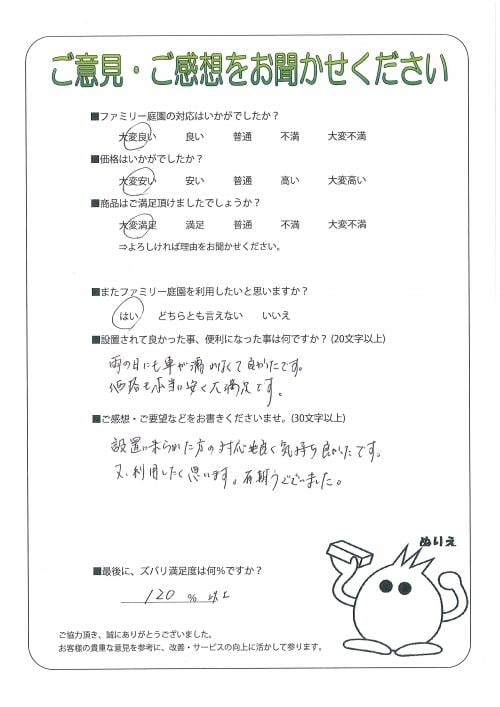 ご意見・ご感想をお聞かせください
■ファミリー庭園の対応はいかがでしたか？
大変良い 良い 普通 不満 大変不満
■価格はいかがでしたか？
大変安い 安い 普通 高い 大変高い
■商品はご満足頂けましたでしょうか？
大変満足 満足 普通 不満 大変不満
⇒よろしければ理由をお聞かせください。
■またファミリー庭園を利用したいと思いますか？
はい どちらとも言えない いいえ
■設置されて良かった事、便利になった事は何ですか？(20文字以上)
雨の日にも車が濡れなくて良かったです。
価格も本当に安く大満足です。
■ご感想・ご要望などをお書きくださいませ。(30文字以上)
設置に来られた方の対応も良く気持ち良かったです。
又、利用したく思います。有難うございました。
ぬりえ
■最後に、ズバリ満足度は何%ですか？
120 % 以上
ご協力頂き、誠にありがとうございました。
お客様の貴重な意見を参考に、改善・サービスの向上に活かして参ります。